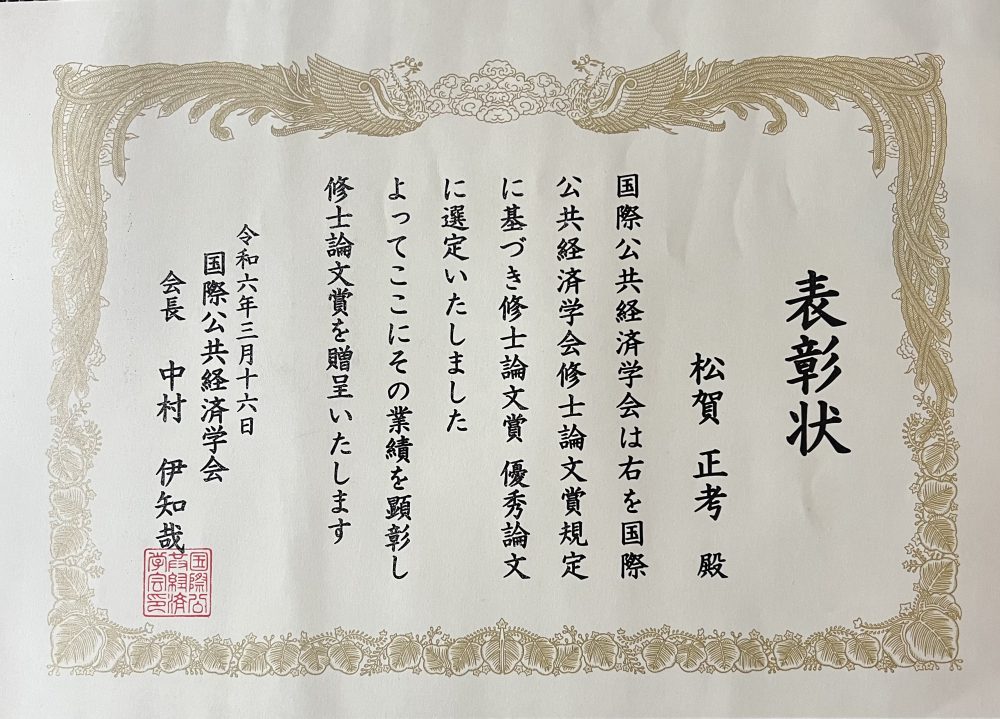 表彰状
松賀 正考 殿
国際公共経済学会は右を国際
公共経済学会修士論文賞規定
に基づき修士論文賞 優秀論文
に選定いたしました
よってここにその業績を顕彰し
修士論文賞を贈呈いたします
令和六年三月十六日
国際公共経済学会
会長 中村 伊知哉
国際公
共経済
学会印